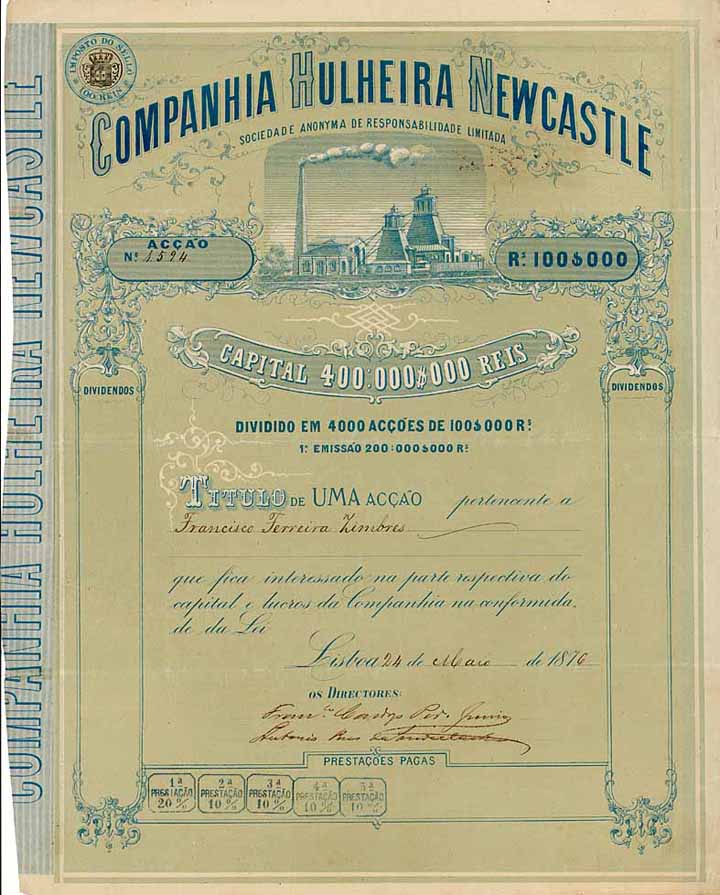 IMPOSTO DO SELLO
100 REIS
COMPANHIA HULHEIRA NEWCASTLE
SOCIEDADE ANONYMA DE RESPONSABILIDADE LIMITADA
ACÇÃO
Nº 1594
Rˢ 100$000
CAPITAL 400:000$000 REIS
DIVIDENDOS
DIVIDENDOS
DIVIDIDO EM 4000 ACÇÕES DE 100$000 Rˢ
1ª EMISSÃO 200:000$000 Rˢ
TITULO DE UMA ACÇÃO pertencente a
Francisco Ferreira Zimbres
que fica interessado na parte respectiva do
capital e lucros da Companhia na conformida,
de da Lei
Lisboa 24 de Maio de 1876
OS DIRECTORES:
PRESTAÇÕES PAGAS
1ª PRESTAÇÃO 20 %
2ª PRESTAÇÃO 10 %
3ª PRESTAÇÃO 10 %
4ª PRESTAÇÃO 10 %
5ª PRESTAÇÃO 10 %
COMPANHIA HULHEIRA NEWCASTLE